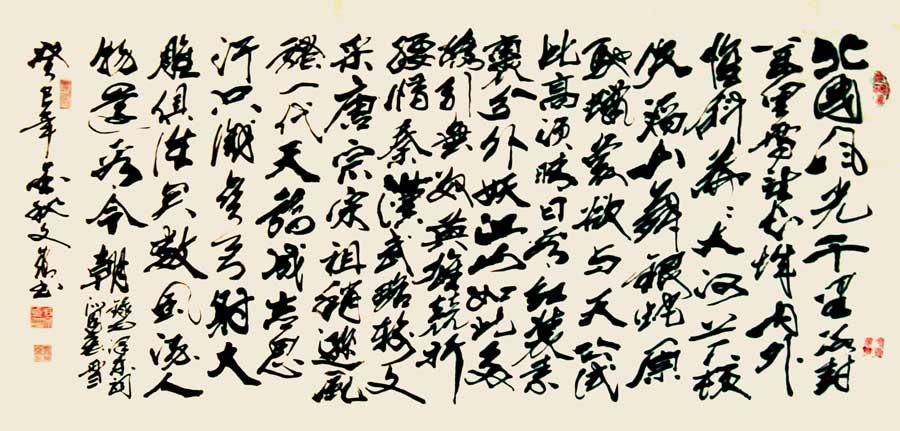 北國風光千里冰封
萬里雪飄望長城內外
惟餘莽々大河上下頓
失滔山舞銀蛇原
馳蠟象欲與天公試
比高須晴日看紅裝素
裹分外妖江山如此多
嬌引無數英雄競折
腰惜秦漢武略輸文
采唐宗宋祖稍遜風
騷一代天驕成吉思
汗只識彎弓射大
雕俱往矣數風流人
物還看今朝
錄毛澤東詞
沁園春雪
癸巳年秋文書